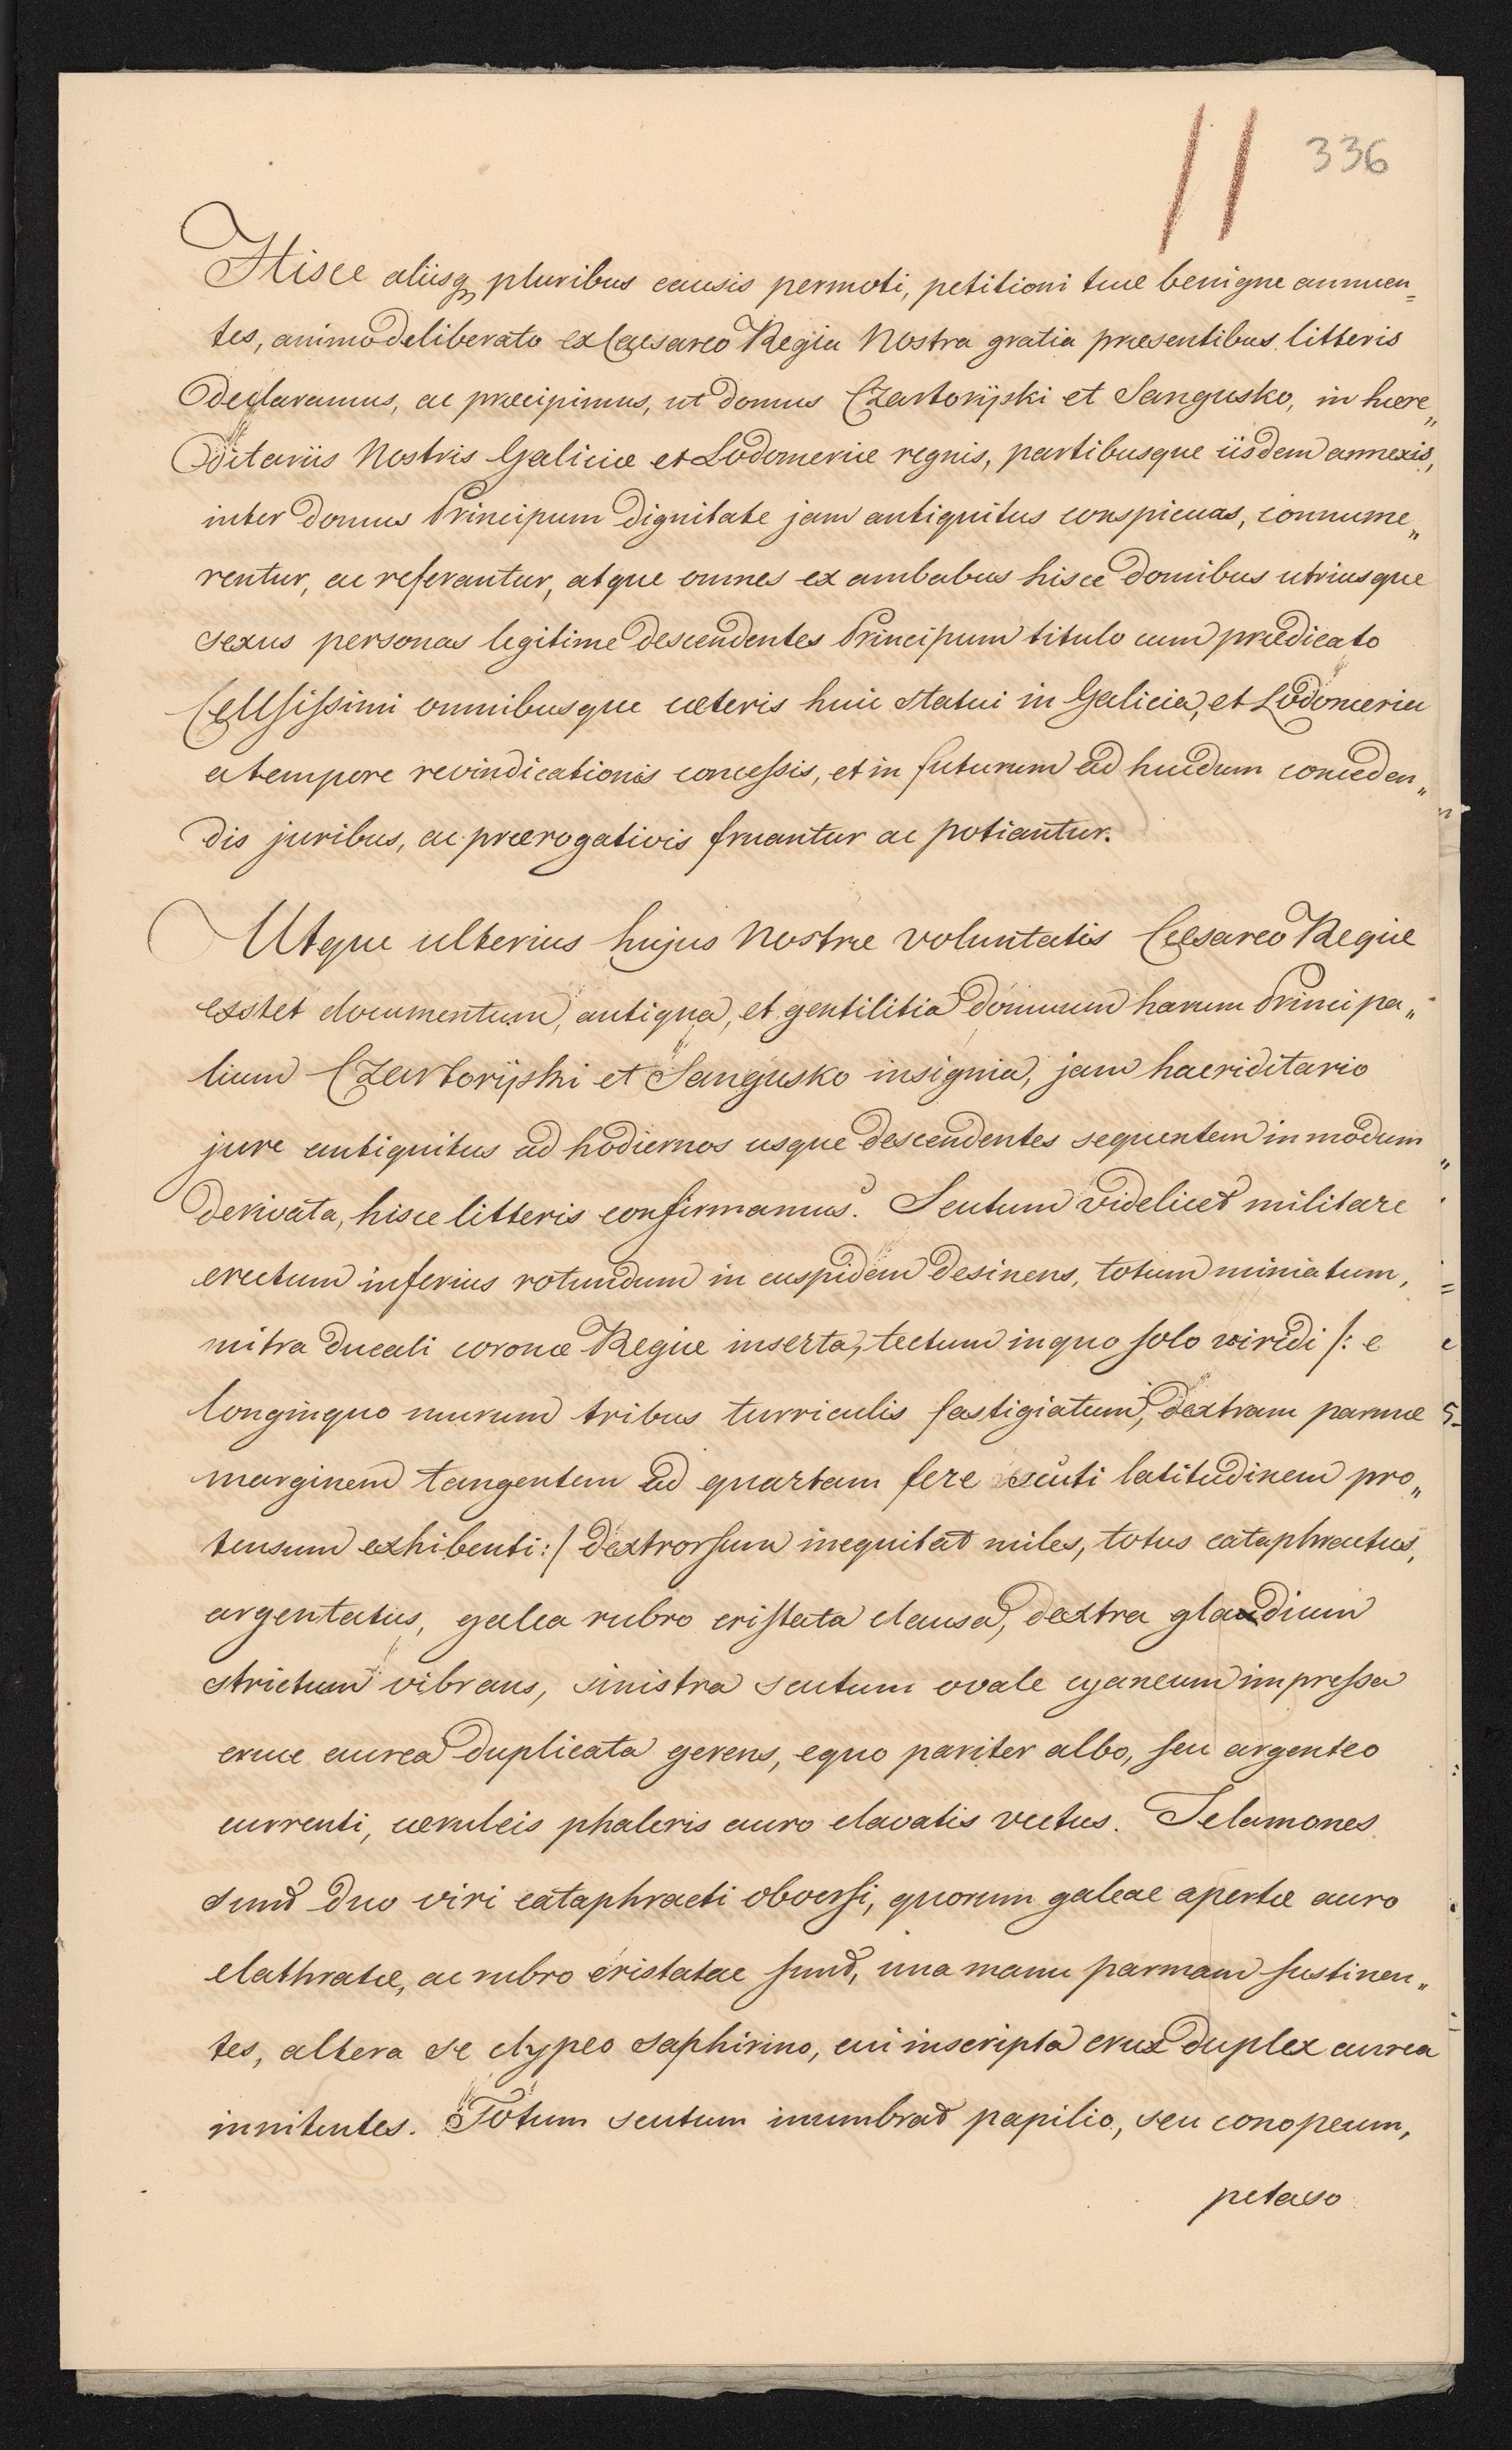 11 336
Hisce aliisq pluribus causis permoti, petitioni tuæ benigne annuen=
tes, animo deliberato ex Cæsareo Regia Nostra gratia præsentibus litteris
declaramus, ac præcipimus, ut domus Czartorijski et Sangusko, in hære„
ditariis Nostris Galiciæ et Lodomeriæ regnis, partibusque iisdem annexis,
inter domus Principum dignitate jam antiquitus conspicuas, connume„
rentur, ac referantur, atque omnes ex ambabus hisce domibus utriusque
sexus personas legitime descendentes Principum titulo cum prædicato
Cellsissimi omnibusque cæteris huic statui in Galicia, et Lodomeria
a tempore revindicationis concessis, et in futurum ad huedum conceden„
dis juribus, ac prærogativis fruantur ac potiantur.
Utque ulterius hujus Nostræ voluntatis Cæsareo Regiæ
exstet documentum, antiqua, et gentilitia domuum harum Principa„
lium Czartorijski et Sangusko insignia, jam haeriditario
jure antiquitus ad hodiernos usque descendentes sequentem in modum
derivata, hisce litteris confirmamus. Scutum videlicet militare
erectum inferius rotundum in cuspidem desinens, totum miniatum,
mitra ducali coronæ Regiæ inserta, tectum in quo solo viridi /: e
longinquo murum tribus turriculis fastigiatum, dextram parmæ
marginem tangentem ad quartam fere scuti latitudinem pro„
tensum exhibenti :/ dextrorsum inequitat miles, totus cataphractus,
argentatus, galea rubro cristata clausa, dextra gladium
strictum vibrans, sinistra scutum ovale cyaneum impressa
cruce aurea duplicata gerens, equo pariter albo, seu argenteo
currenti, cæruleis phaleris auro clavatis vectus. Telamones
sunt duo viri cataphracti obversi, quorum galeae apertæ auro
clathratæ, ac rubro cristatae sunt, una manu parmam sustinen„
tes, altera se clypeo saphirino, cui inscripta crux duplex aurea
innitentes. Totum scutum inumbrat papilio, seu conopeum,
petaso